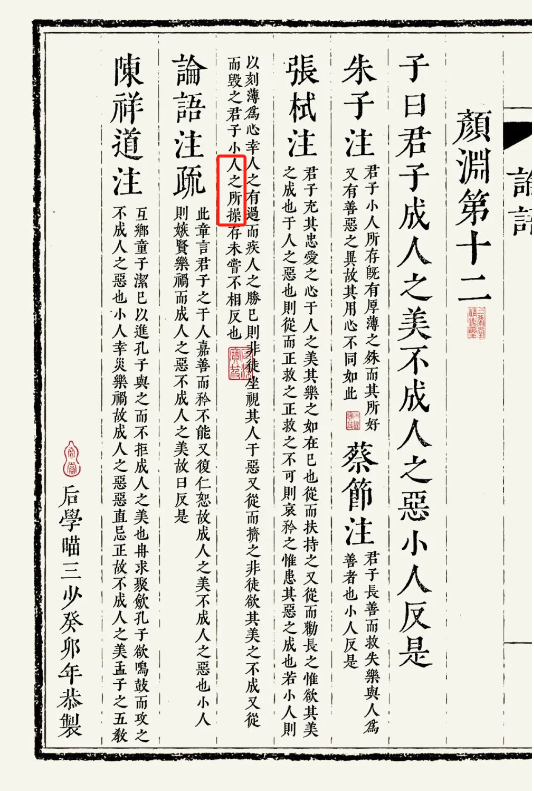 論語
顏淵第十二
子曰君子成人之美不成人之惡小人反是
朱子注
君子小人所存既有厚薄之殊而其所好
又有善惡之異故其用心不同如此
蔡節注
君子長善而救失樂與人爲
善者也小人反是
張栻注
君子充其忠愛之心于人之美其樂之如在己也從而扶持之又從而勸長之惟欲其美
之成也于人之惡也則從而正救之正救之不可則哀矜之惟患其惡之成也若小人則
以刻薄爲心幸人之有過而疾人之勝己則非徒坐視其人于惡又從而擠之非徒欲其美之不成又從
而毀之君子小人之所操存未嘗不相反也
論語注疏
此章言君子之于人嘉善而矜不能又復仁恕故成人之美不成人之惡也小人
則嫉賢樂禍而成人之惡不成人之美故曰反是
陳祥道注
互鄉童子潔己以進孔子與之而不拒成人之美也冉求聚斂孔子欲鳴鼓而攻之
不成人之惡也小人幸災樂禍故成人之惡惡直忌正故不成人之美孟子之五教
后學喵三少癸卯年恭製